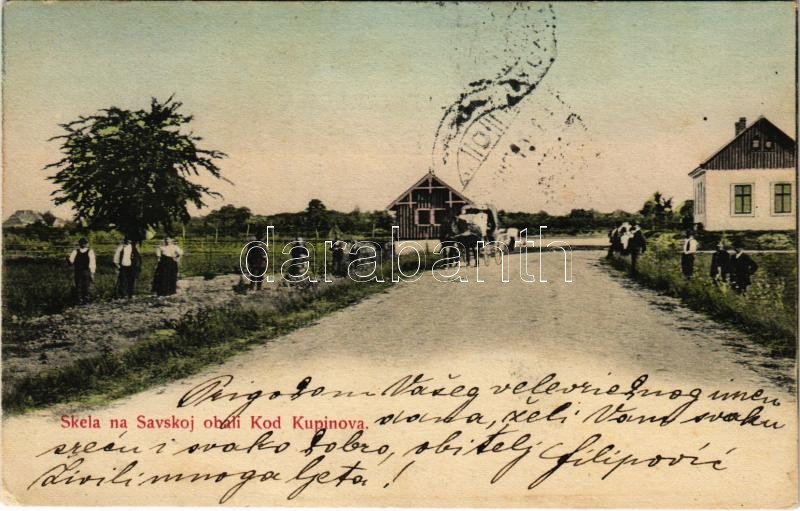 darabanth
Prigodom Vašeg velevriednog imen
Skela na Savskoj obali Kod Kupinova.
dana, želi Vam svaku
sreću i svako dobro, obitelj Filipović
Živili mnoga ljeta!